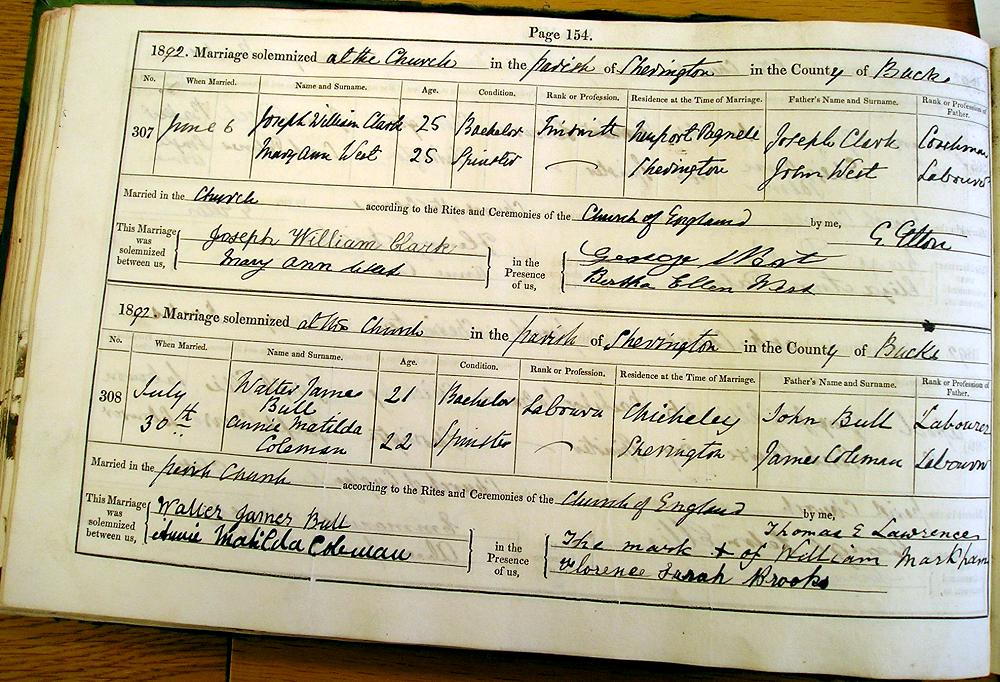 Page 154.
1892. Marriage solemnized at the Church in the parish of Sherington in the County of Bucks
No. When Married. Name and Surname. Age. Condition. Rank or Profession. Residence at the Time of Marriage. Father's Name and Surname. Rank or Profession of Father.
307 June 6 Joseph William Clark 25 Bachelor Tinsmith Newport Pagnell Joseph Clark Coachman
Mary Ann West 25 Spinster Sherington John West Labourer
Married in the Church according to the Rites and Ceremonies of the Church of England by me,
This Marriage was solemnized between us, Joseph William Clark in the Presence of us, George West
Mary Ann West Bertha Ellen West
1892. Marriage solemnized at the Church in the parish of Sherington in the County of Bucks
No. When Married. Name and Surname. Age. Condition. Rank or Profession. Residence at the Time of Marriage. Father's Name and Surname. Rank or Profession of Father.
308 July 30th Walter James Bull 21 Bachelor Labourer Chicheley John Bull Labourer
Annie Matilda Coleman 22 Spinster Sherington James Coleman Labourer
Married in the parish Church according to the Rites and Ceremonies of the Church of England by me,
Thomas E Lawrence
This Marriage was solemnized between us, Walter James Bull in the Presence of us, The mark + of William Markham
Annie Matilda Coleman Florence Sarah Brooks